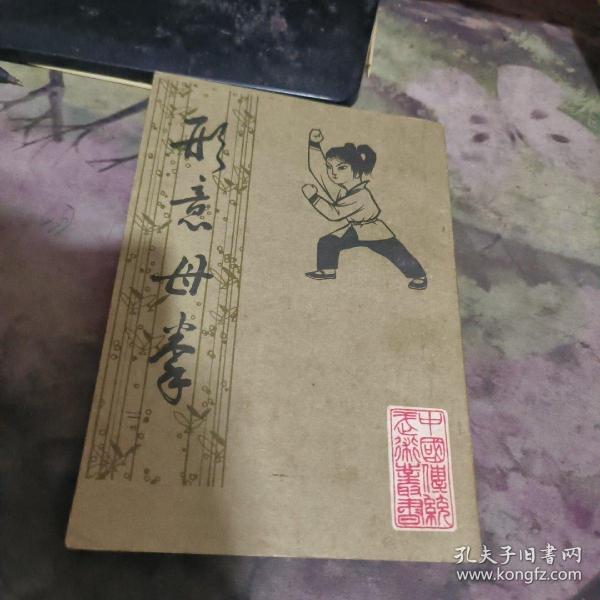 形意母拳
中國傳統
武術叢書
孔夫子旧书网
www.kongfz.com